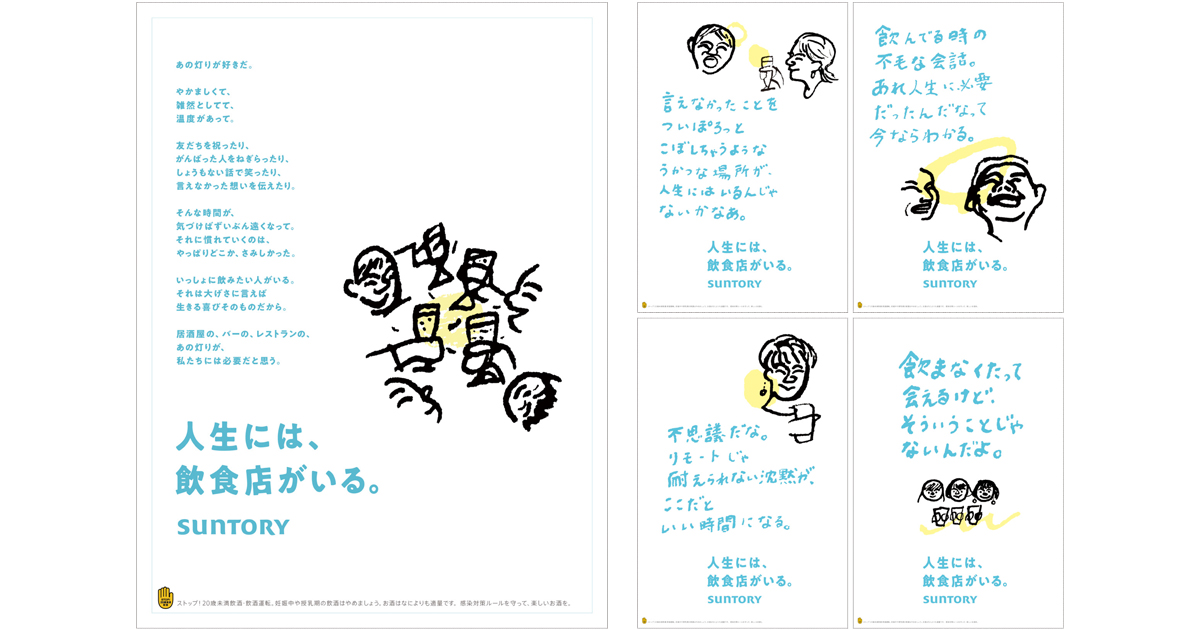 あの灯りが好きだ。
やかましくて、
雑然としてて、
温度があって。
友だちを祝ったり、
がんばった人をねぎらったり、
しょうもない話で笑ったり、
言えなかった想いを伝えたり。
そんな時間が、
気づけばずいぶん遠くなって。
それに慣れていくのは、
やっぱりどこか、さみしかった。
いっしょに飲みたい人がいる。
それは大げさに言えば
生きる喜びそのものだから。
居酒屋の、バーの、レストランの、
あの灯りが、
私たちには必要だと思う。
人生には、
飲食店がいる。
SUNTORY
ストップ!20歳未満飲酒・飲酒運転。妊娠中や授乳期の飲酒はやめましょう。お酒はなによりも適量です。感染対策ルールを守って、楽しいお酒を。
言えなかったことを
ついぽろっと
こぼしちゃうような
うかつな場所が、
人生にはいるんじゃ
ないかなあ。
人生には、
飲食店がいる。
SUNTORY
飲んでる時の
不毛な会話。
あれ人生に必要
だったんだなって
今ならわかる。
人生には、
飲食店がいる。
SUNTORY
不思議だな。
リモートじゃ
耐えられない沈黙が、
ここだと
いい時間になる。
人生には、
飲食店がいる。
SUNTORY
飲まなくたって
会えるけど、
そういうことじゃ
ないんだよ。
人生には、
飲食店がいる。
SUNTORY